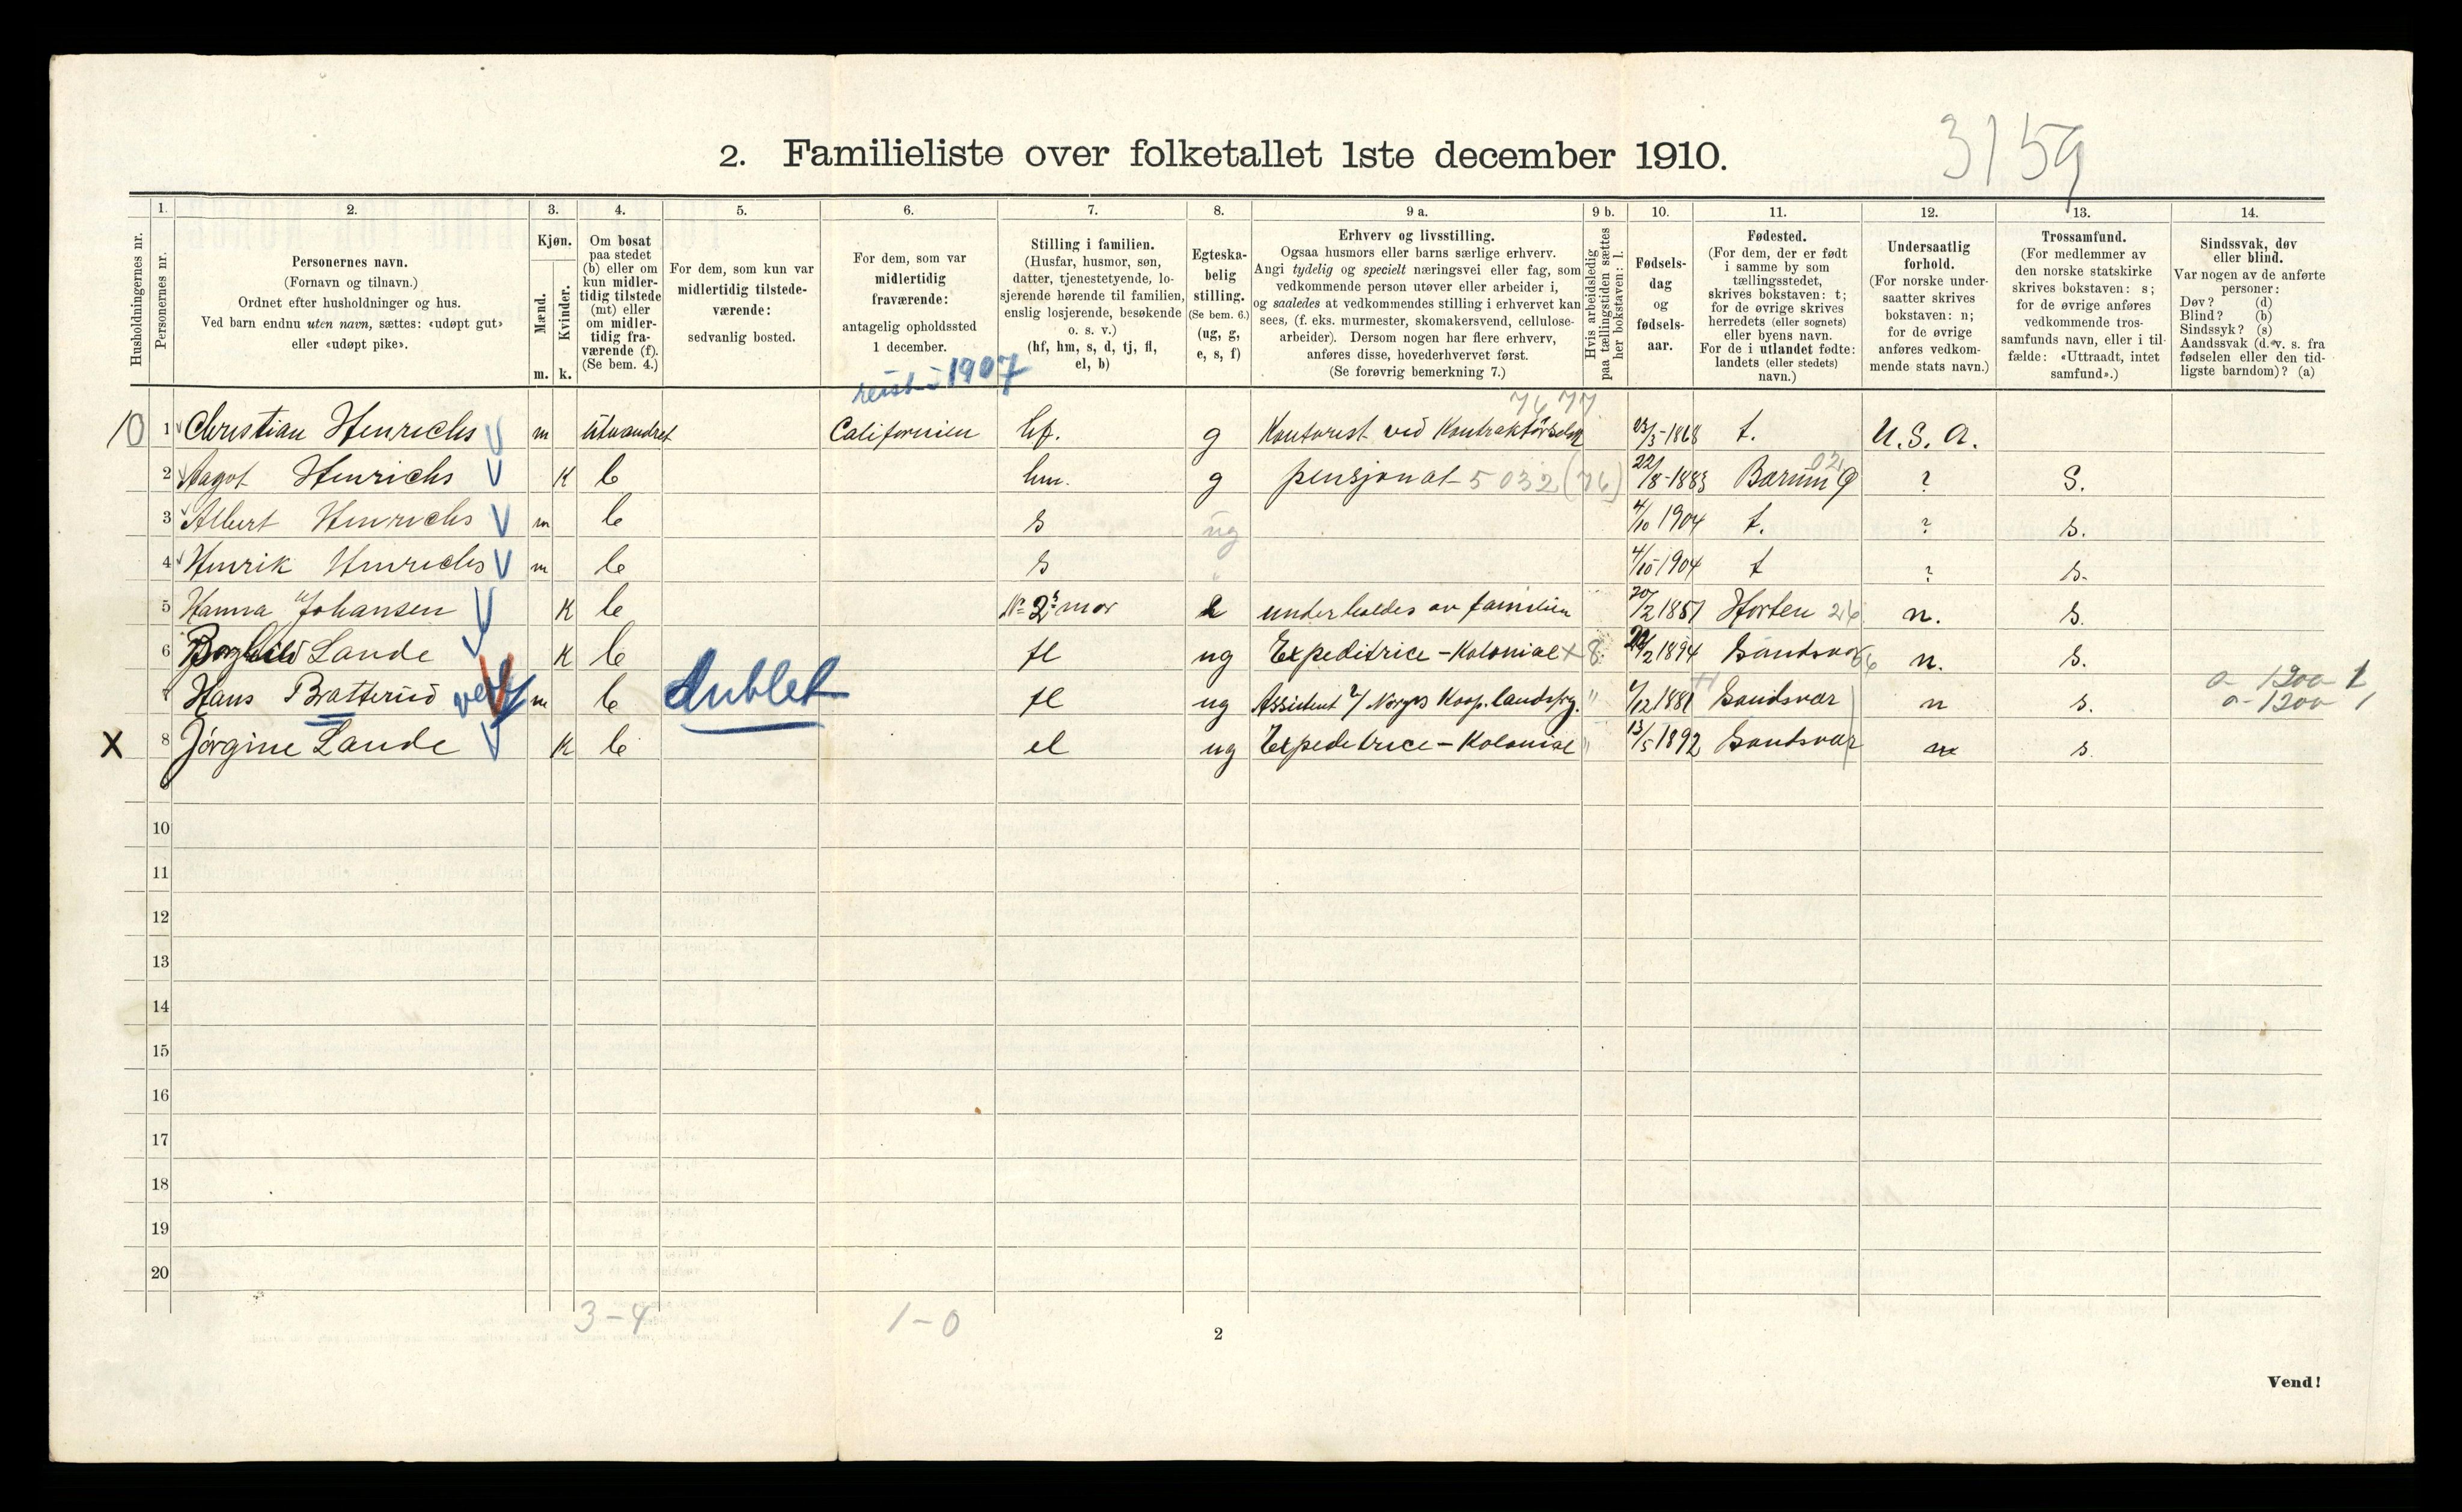 3159
2. Familieliste over folketallet 1ste december 1910.
Husholdningernes nr.
1. Personernes nr.
2. Personernes navn. (Fornavn og tilnavn.) Ordnet efter husholdninger og hus. Ved barn endnu uten navn, sættes: «udøpt gut» eller «udøpt pike».
3. Kjøn. Mænd. Kvinder. m. k.
4. Om bosat paa stedet (b) eller om kun midlertidig tilstede (mt) eller om midlertidig fraværende (f). (Se bem. 4.)
5. For dem, som kun var midlertidig tilstedeværende: sedvanlig bosted.
6. For dem, som var midlertidig fraværende: antagelig opholdssted 1 december.
7. Stilling i familien. (Husfar, husmor, søn, datter, tjenestetyende, losjerende hørende til familien, enslig losjerende, besøkende o. s. v.) (hf, hm, s, d, tj, fl, el, b)
8. Egteskabelig stilling. (Se bem. 6.) (ug, g, e, s, f)
9 a. Erhverv og livsstilling. Ogsaa husmors eller barns særlige erhverv. Angi tydelig og specielt næringsvei eller fag, som vedkommende person utøver eller arbeider i, og saaledes at vedkommendes stilling i erhvervet kan sees, (f. eks. murmester, skomakersvend, cellulosearbeider). Dersom nogen har flere erhverv, anføres disse, hovederhvervet først. (Se forøvrig bemerkning 7.)
9 b. Hvis arbeidsledig paa tællingstiden sættes her bokstaven: l.
10. Fødselsdag og fødselsaar.
11. Fødested. (For dem, der er født i samme by som tællingsstedet, skrives bokstaven: t; for de øvrige skrives herredets (eller sognets) eller byens navn. For de i utlandet fødte: landets (eller stedets) navn.)
12. Undersaatlig forhold. (For norske undersaatter skrives bokstaven: n; for de øvrige anføres vedkommende stats navn.)
13. Trossamfund. (For medlemmer av den norske statskirke skrives bokstaven: s; for de øvrige anføres vedkommende trossamfunds navn, eller i tilfælde: «Uttraadt, intet samfund».)
14. Sindssvak, døv eller blind. Var nogen av de anførte personer: Døv? (d) Blind? (b) Sindssyk? (s) Aandssvak (d. v. s. fra fødselen eller den tidligste barndom)? (a)
reist i 1907
7677
10 1 Christian Henrichs m utvandret Californien hf. g Kontorist ved 23/5-1868 t. U.S.A.
2 Aagot Henrichs k b hm. g pensjonat 5032 (76) 22/8-1883 Bærum 02 ? S.
3 Albert Henrichs m b s ug 4/10 1904 t. ? s.
4 Henrik Henrichs m b s 4/10-1904 t ? s.
5 Hanna Johansen k b Nr 2's mor e underholdes av familien 20/2 1851 Horten 26 n. s.
6 Borghild Lande k b fl ug Expeditrice - Kolonial x 8 /2 1894 Sandsvær n. s.
7 Hans Bratterud m b dublet fl ug Assistent v/ Norges Koop. landsfrg. " /12 1881 Sandsvær n s. a - 1200 1
a - 1300 1
X 8 Jørgine Lande k b el ug Expeditrice - Kolonial " 13/5 1892 Sandsvær n s.
10
11
12
13
14
15
16
17
18
19
20
3-4 1-0
2
Vend!